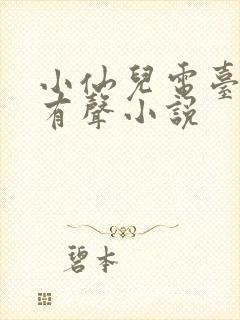 小仙兒電臺
有聲小說
碧本